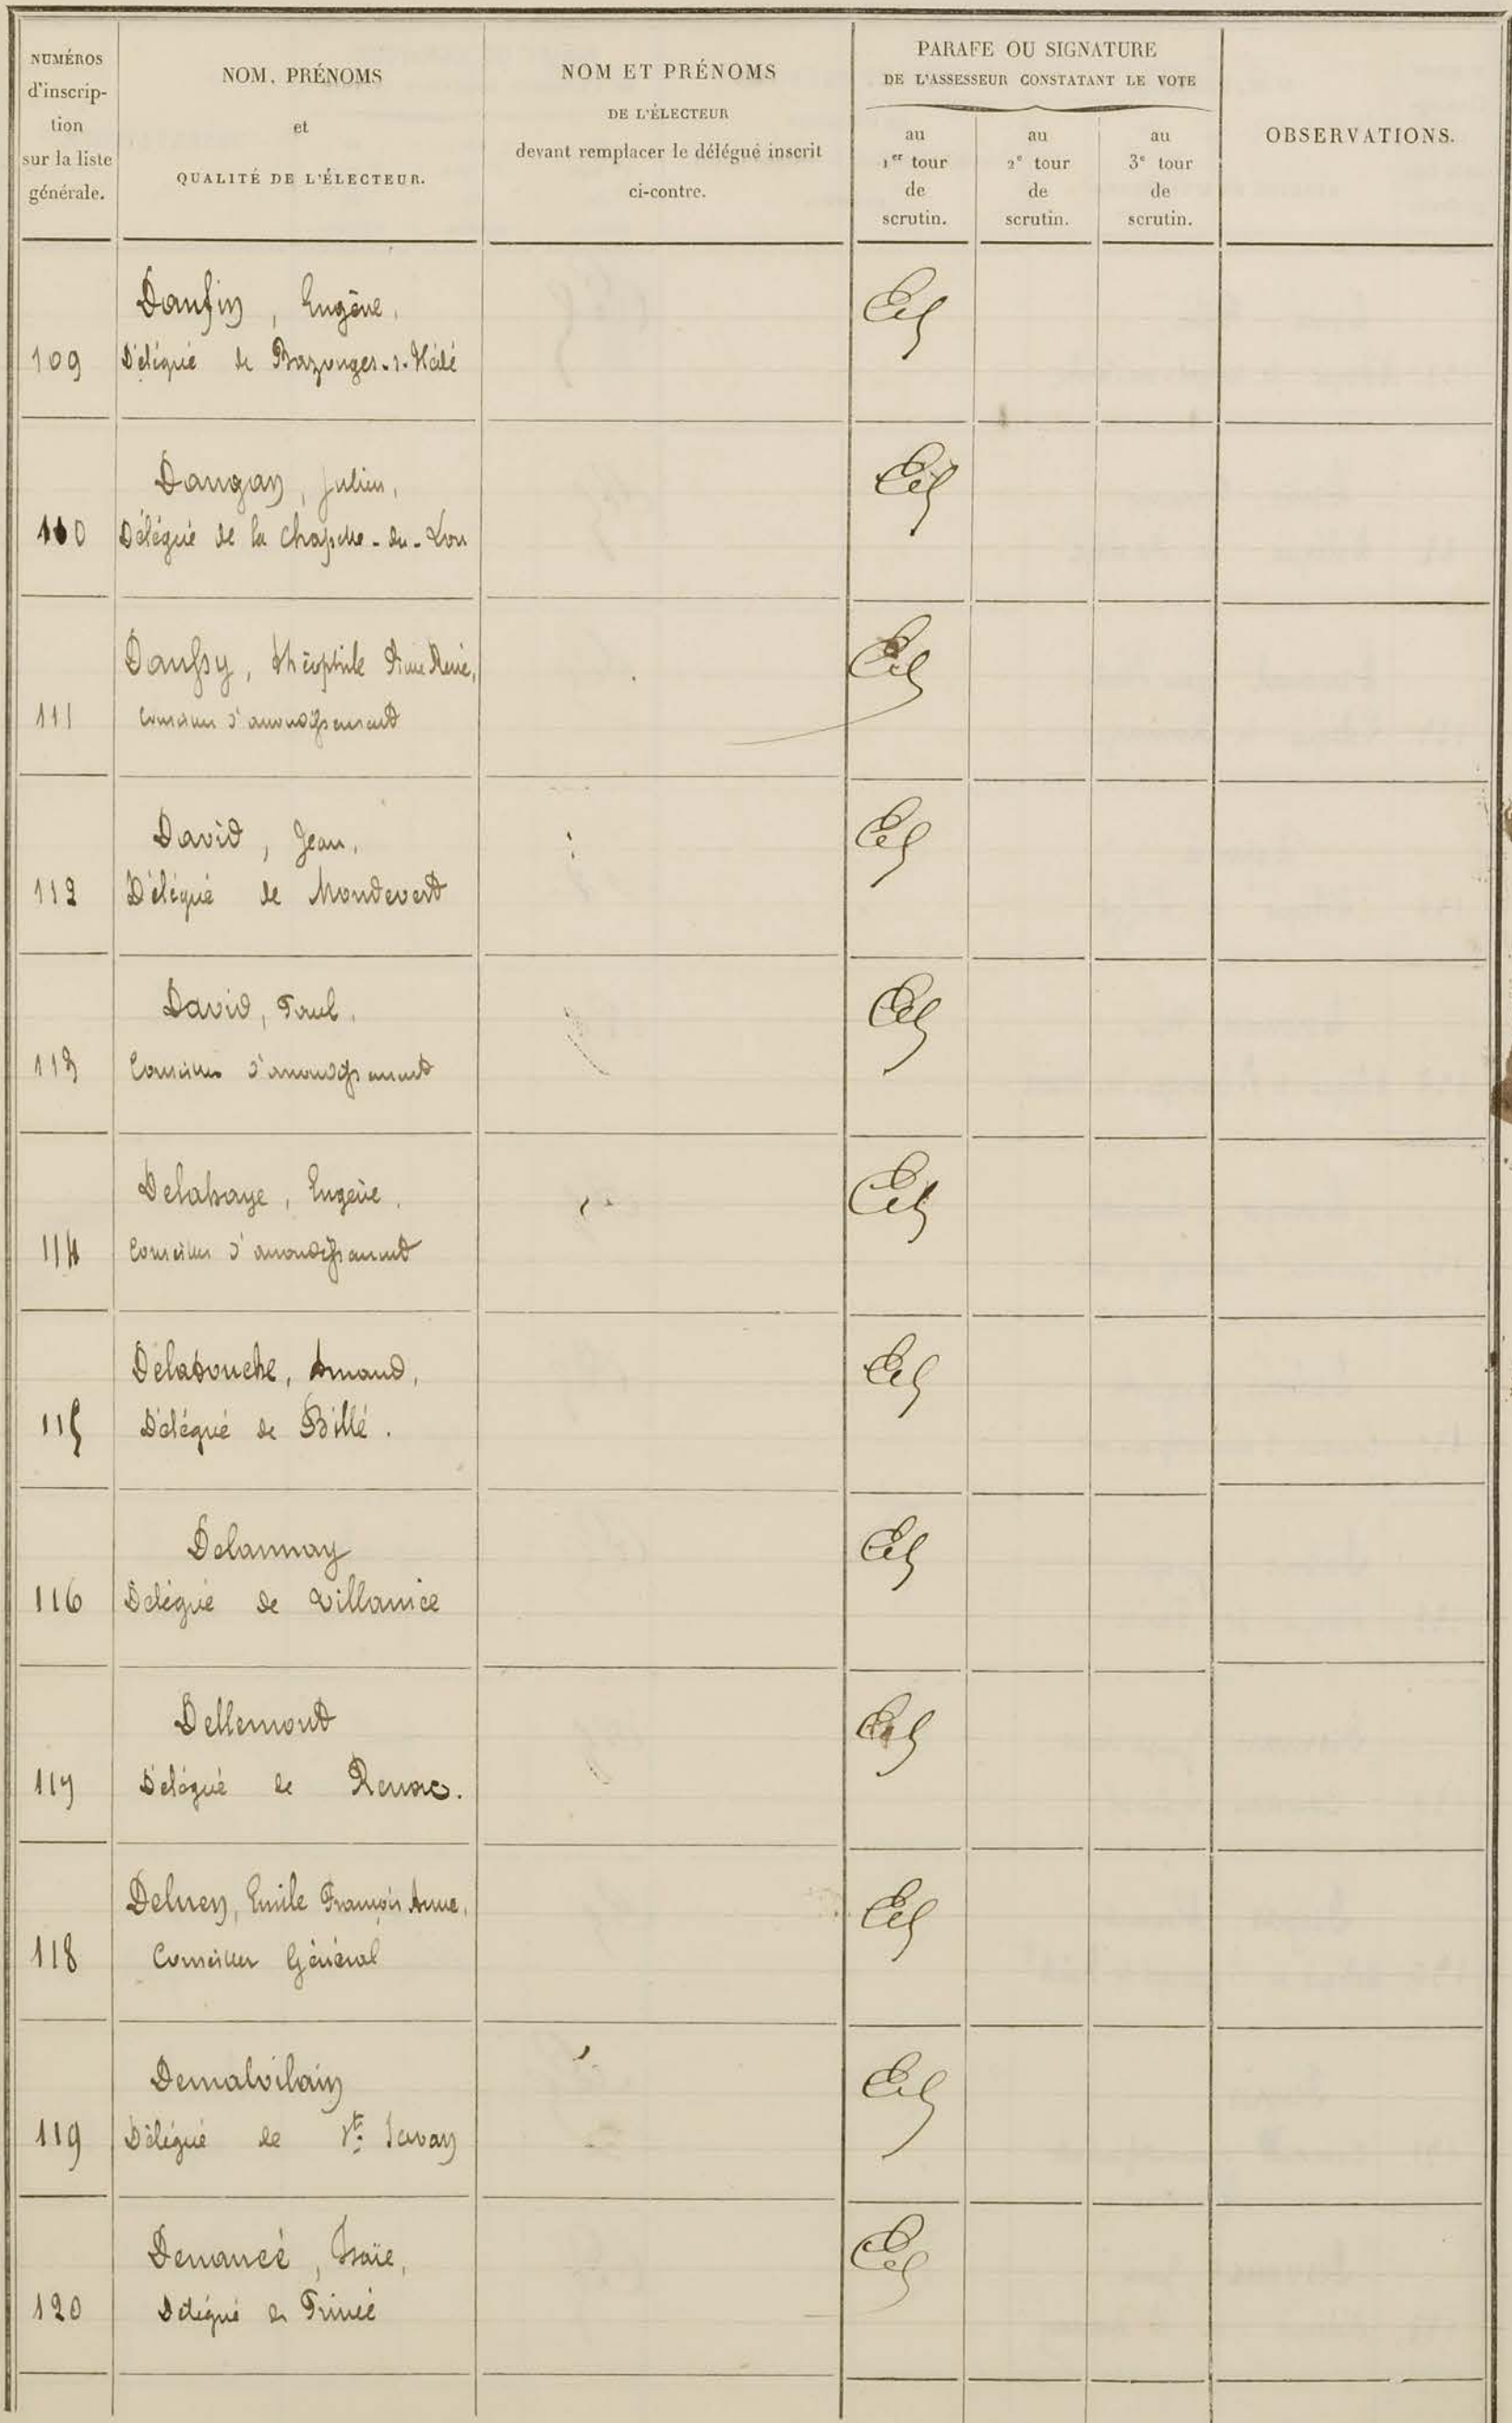 NUMÉROS
d'inscrip-
tion
sur la liste
générale.
NOM, PRÉNOMS
et
QUALITÉ DE L'ÉLECTEUR.
NOM ET PRÉNOMS
DE L'ÉLECTEUR
devant remplacer le délégué inscrit
ci-contre.
PARAFE OU SIGNATURE
DE L'ASSESSEUR CONSTATANT LE VOTE
au
1er tour
de
scrutin.
au
2e tour
de
scrutin.
au
3e tour
de
scrutin.
OBSERVATIONS.
Daufin, Eugène,
109 Délégué de Bazouges-s-Hédé
Daugan, Julien,
110 Délégué de la Chapelle-du-Lou
Daussy, Théophile René,
111 Conseiller d'arrondissement
David, Jean,
112 Délégué de Mondevert
David, Paul,
113 Conseiller d'arrondissement
Delahaye, Eugène,
114 Conseiller d'arrondissement
Delatouche, Amand,
115 Délégué de Billé.
Delaunay
116 Délégué de Villamée
Dellemont
117 Délégué de Renac.
Deluen, Emile François Anne,
118 Conseiller Général
Demalvilain
119 Délégué de St Servan
Denancé, Isaïe,
120 Délégué de Princé